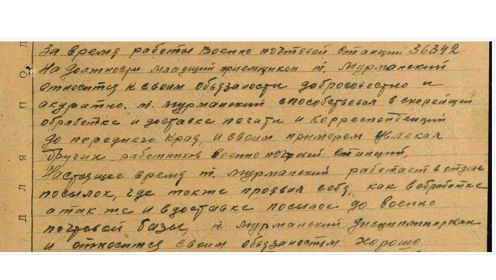 За время работы Военно почтовой Станции 36342
На должности младший приемщиком т. Мурманский
относится к своим обязаности добросовестно и
акуратно. т. Мурманский способствовал в скорейшей
обработке и доставке почати и корреспонденции
до переднего края, и своим примером увлекал
других работников военно почтовой станций.
Настоящее время т. Мурманский работает в отделе
посылок, где также проявил себя, как в обработке
а так же и в доставке посылок до военно
почтовой базы, т. Мурманский дисциплинирован
и относится своим обязаностям хорошо
Д Л Я П О Л